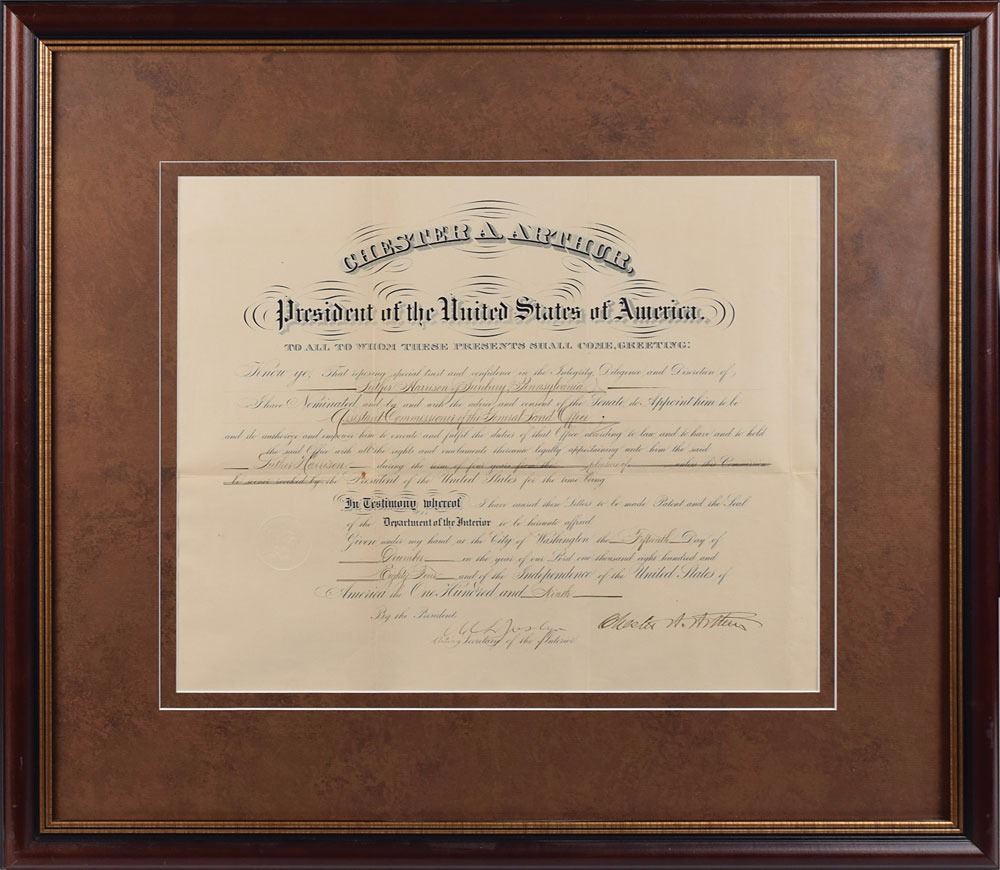 CHESTER A. ARTHUR,
President of the United States of America.
TO ALL TO WHOM THESE PRESENTS SHALL COME, GREETING:
Know ye, That reposing special trust and confidence in the Integrity, Diligence and Discretion of,
Luther Harrison of Sunbury, Pennsylvania
I have Nominated and by and with the advice and consent of the Senate do Appoint him to be
Assistant Commissioner of the General Land Office
and do authorize and empower him to execute and fulfil the duties of that Office according to law and to have and to hold
the said Office with all the rights and emoluments thereunto legally appertaining unto him the said
Luther Harrison during the term of four years from the pleasure of unless this Commission
be sooner revoked by the President of the United States for the time being
In Testimony whereof I have caused these Letters to be made Patent and the Seal
of the Department of the Interior to be hereunto affixed
Given under my hand at the City of Washington the Fifteenth Day of
December in the year of our Lord one thousand eight hundred and
Eighty Four and of the Independence of the United States of
America the One Hundred and Ninth
By the President.
Chester A. Arthur
Joslyn
Acting Secretary of the Interior